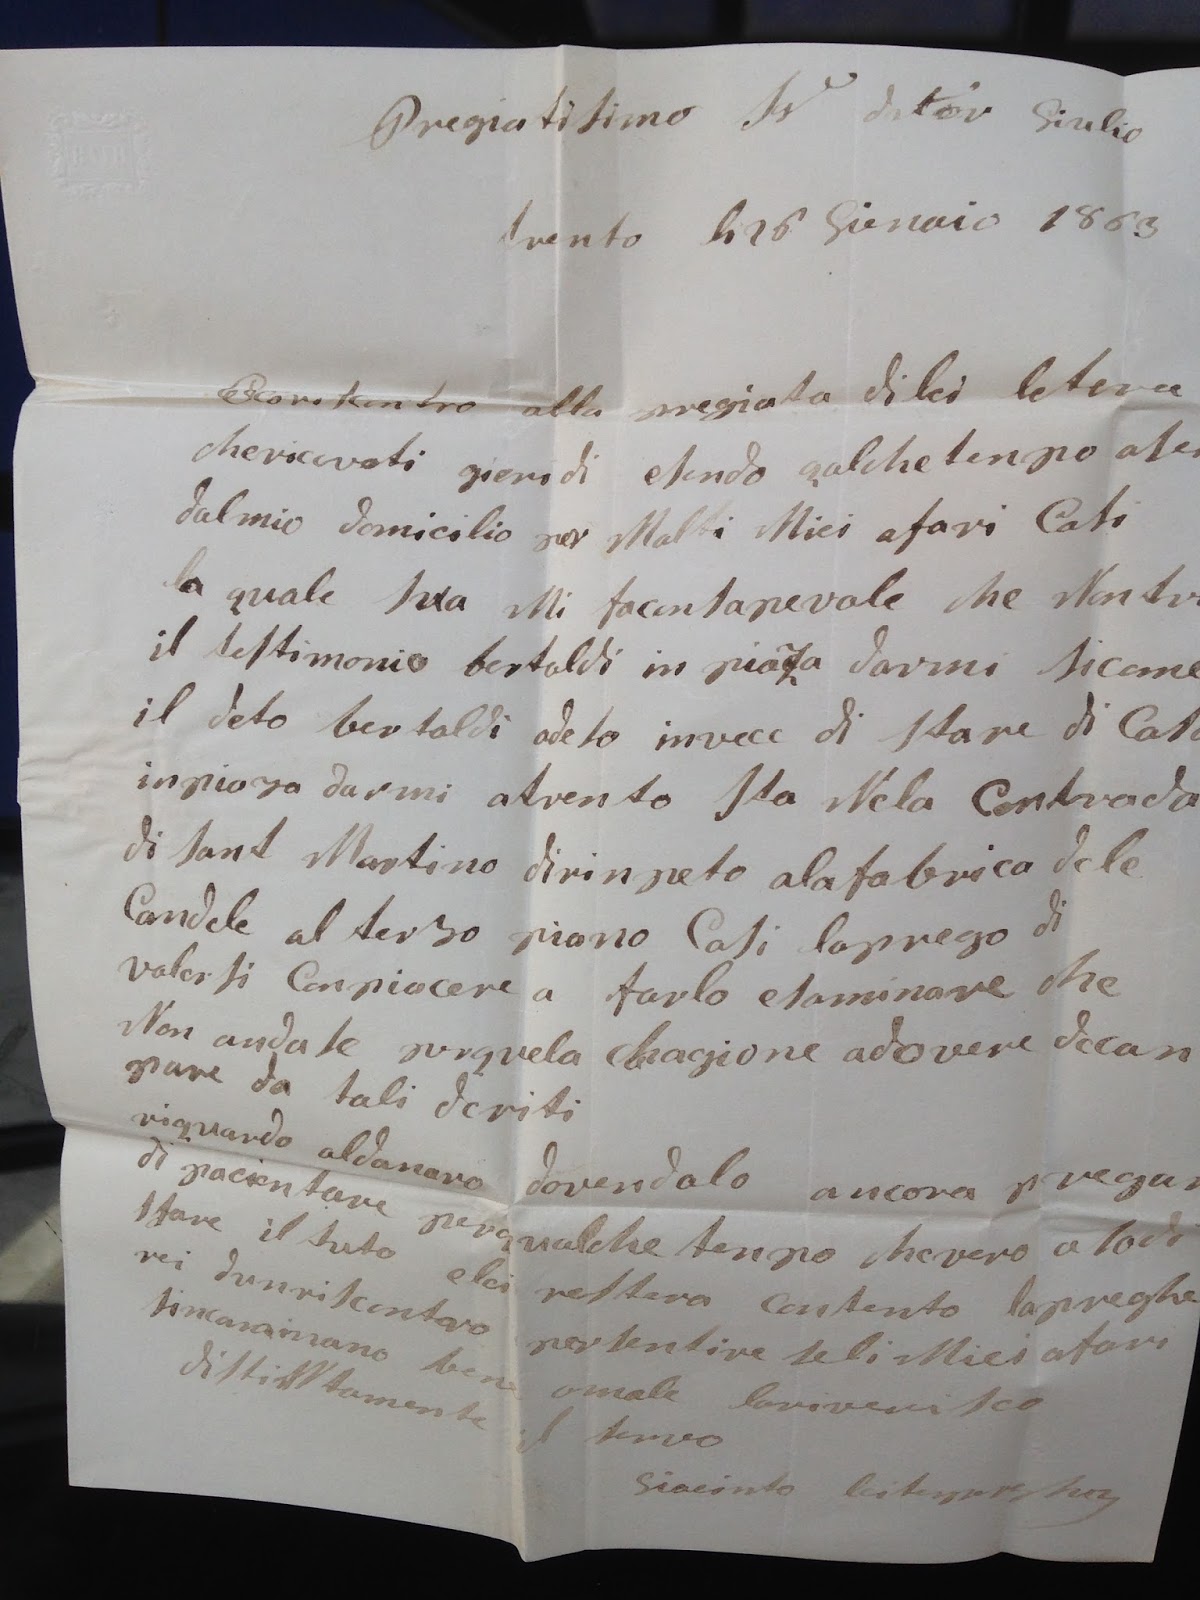 Pregiatisimo Sr dator Giulio
trento li 26 Gienaio 1863
alla pregiata di lei letera
che riceveti gieri di esendo qalche tenpo asen
dal mio domicilio per Malti Miei afari Casi
la quale Sua Mi faconsapevale che Non tr
il testimonio bertaldi in piaza darmi sicome
il deto bertaldi adeto invece di stare di Casa
in piaza darmi atrento sta Nela Contrada
di sant Martino dirinpeto ala fabrica dele
Candele al terzo piano Casi la prego di
valersi Conpiacere a farlo esaminare che
Non andase per quela chagione adovere decan
pare da tali deriti
riguardo al danaro dovendalo ancora pregar
di pacientare per qualche tenpo che vero a sodi
sfare il tuto e lei restera contento la preghe
rei dun riscontaro per sentire se li Miei afari
sincaminano bene o male la riverisco
distintamente il servo
Giacinto